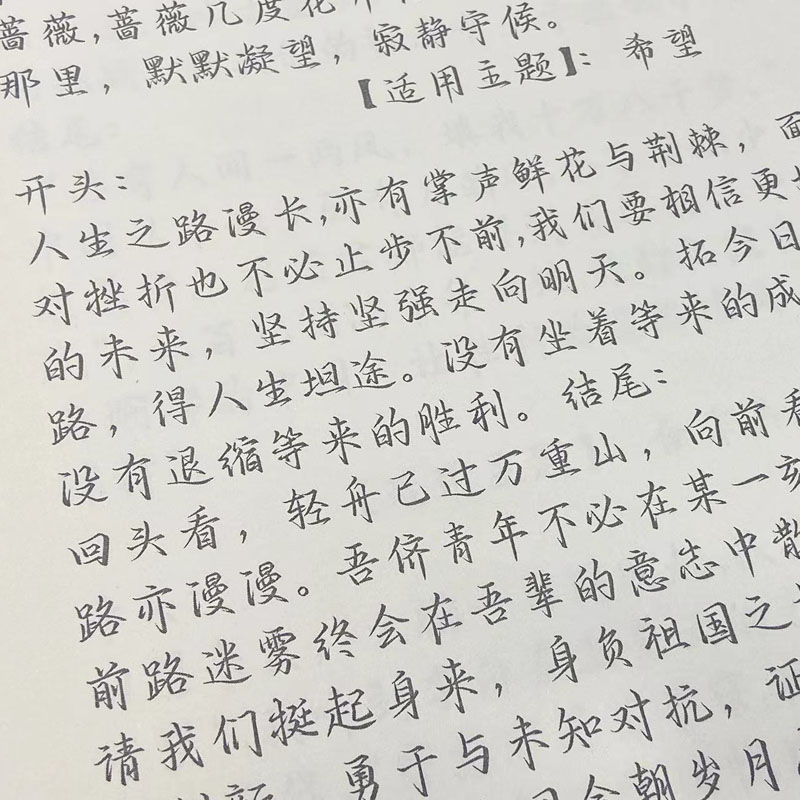 蔷薇,蔷薇几度花
那里,默默凝望,寂静守候。
【适用主题】:希望
开头:
人生之路漫长,亦有掌声鲜花与荆棘,面
对挫折也不必止步不前,我们要相信更
的未来,坚持坚强走向明天。拓今日
路,得人生坦途。没有坐着等来的成
没有退缩等来的胜利。结尾:
回头看,轻舟已过万重山,向前看
路亦漫漫。吾侪青年不必在某一刻
前路迷雾终会在吾辈的意志中散
请我们挺起身来,身负祖国之
勇于与未知对抗,证
今朝岁月